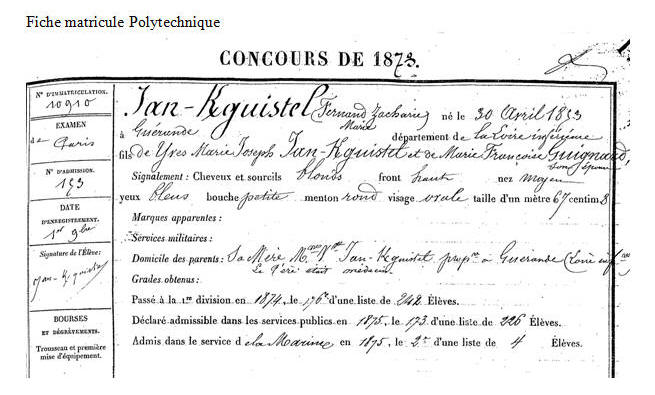 Fiche matricule Polytechnique
CONCOURS DE 1873.
N° D'IMMATRICULATION.
10910
EXAMEN
de Paris
N° D'ADMISSION.
153
DATE
D'ENREGISTREMENT.
1er 9bre
Signature de l'Élève:
Jan-Kguistel
BOURSES
ET DÉGRÈVEMENTS.
Trousseau et première
mise d'équipement.
Jan-Kguistel (Fernand Zacharie Marie) né le 30 Avril 1853
à Guérande département de la Loire inférieure
fils de Yves Marie Joseph Jan-Kguistel et de Marie Françoise Guignard,
son épouse
Signalement : Cheveux et sourcils blonds front haut nez moyen
yeux bleus bouche petite menton rond visage ovale taille d'un mètre 67 centim. 8
Marques apparentes :
Services militaires :
Domicile des parents : Sa Mère Mme Vve Jan-Kguistel propre à Guérande (Loire infre)
Le Père était médecin.
Grades obtenus :
Passé à la 1re division en 1874, le 176e d'une liste de 242 Élèves.
Déclaré admissible dans les services publics en 1875, le 173 d'une liste de 226 Élèves.
Admis dans le service de la Marine en 1875, le 2e d'une liste de 4 Élèves.